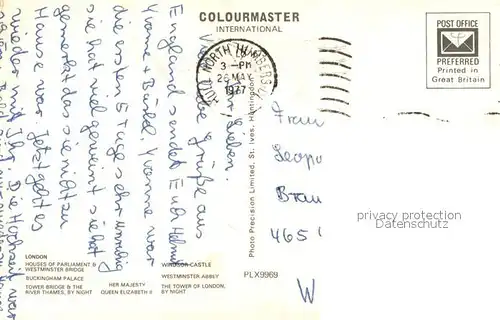 COLOURMASTER
INTERNATIONAL
POST OFFICE
PREFERRED
Printed in
Great Britain
HULL NORTH HUMBERS
3-PM
26 MAY
1977
lieben.
Grüße aus
England sendet Euch Helmut
Yvonne + Bärbel. Yvonne war
die ersten 5 Tage sehr unruhig
sie hat viel geweint sie hat
gemerkt das sie nicht zu
Hause war. Jetzt geht es
wieder mit Ihr. Die Hochzeit war
Frau
Leopo
Brau
465
W
Photo Precision Limited, St. Ives, Huntingdon
privacy protection
various data
LONDON
HOUSES OF PARLIAMENT &
WESTMINSTER BRIDGE
BUCKINGHAM PALACE
TOWER BRIDGE & THE
RIVER THAMES, BY NIGHT
HER MAJESTY
QUEEN ELIZABETH II
WINDSOR CASTLE
WESTMINSTER ABBEY
THE TOWER OF LONDON,
BY NIGHT
PLX9969